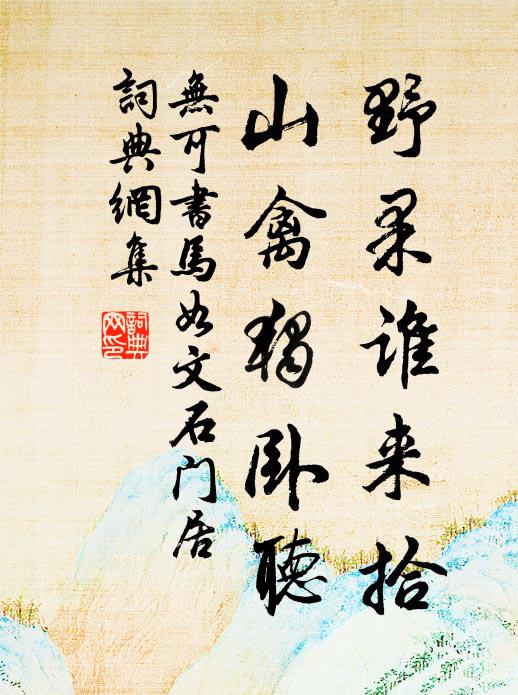 野果谁来拾
山禽独卧聽
無可書馬如文石门居
詞典網集
詞典網印